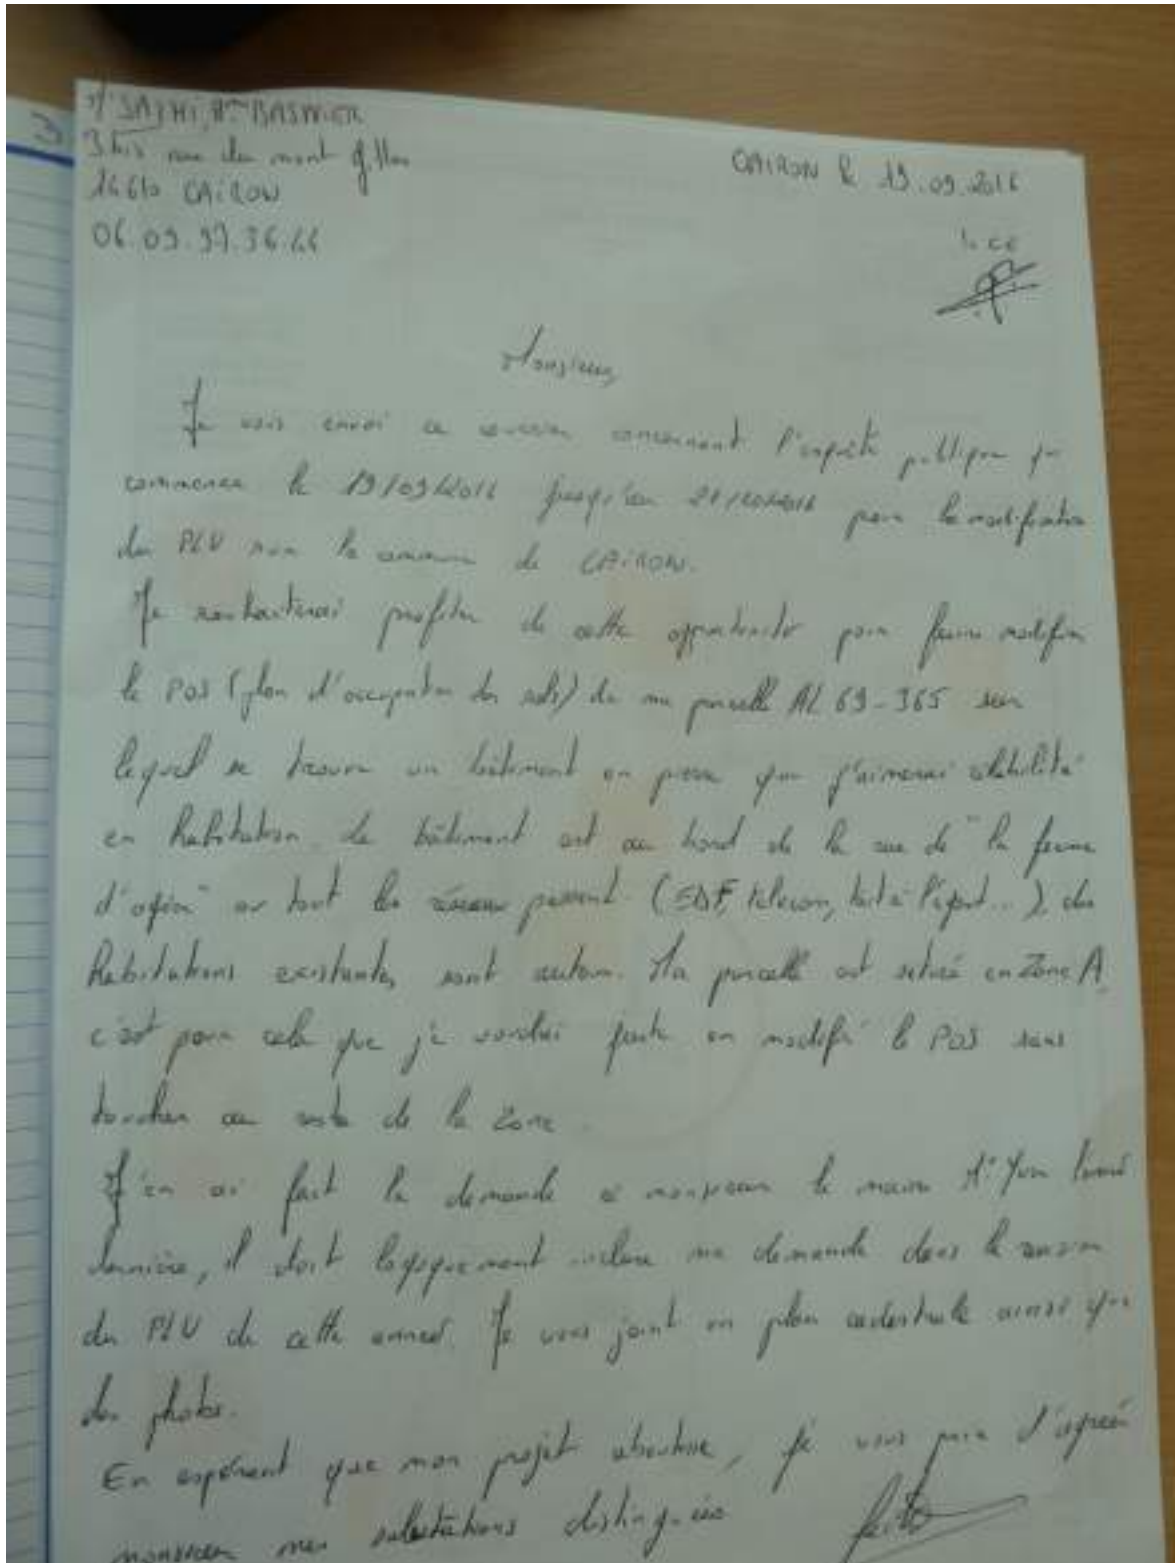 3bis rue du mont
CAIRON
CAIRON le 19.09.2016
Monsieur,
Je vous envoi ce courrier concernant l'enquête publique qui
commence le 19/09/2016 jusqu'au 21/10/2016 pour la modification
du PLU sur la commune de CAIRON.
Je souhaiterai profiter de cette opportunité pour faire modifier
le POS (plan d'occupation des sols) de ma parcelle AL 69-365 sur
lequel se trouve un bâtiment en pierre que j'aimerai réhabilité
en habitation. Le bâtiment est au bord de la rue de "la ferme
" ou tout les réseaux passent (EDF, telecom, tout à l'égout...), des
habitations existantes sont autour. Ma parcelle est situé en Zone A,
c'est pour cela que je voudrai faite en modifié le POS sans
toucher au reste de la zone.
J'en ai fait la demande à monsieur le maire Mr l'année
dernière, il doit logiquement inclure ma demande dans la révision
du PLU de cette année. Je vous joint un plan cadastrale ainsi que
des photos.
En espérant que mon projet aboutisse, je vous prie d'agréer
monsieur mes salutations distinguées